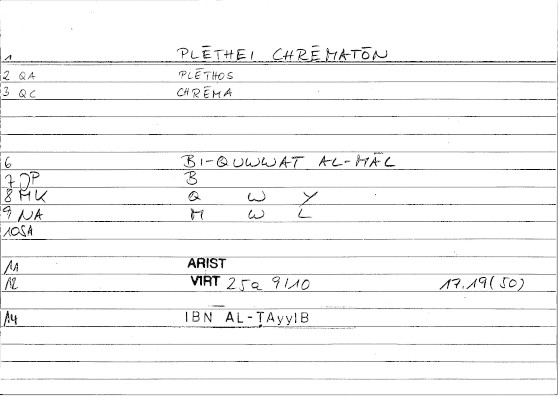 1 PLĒTHEI CHRĒMATŌN
2 QA PLĒTHOS
3 QC CHRĒMA
6 BI-QUWWAT AL-MĀL
7 DP B
8 MK Q W Y
9 NA M W L
10 SA
11 ARIST
12 VIRT 25a 9/10 17.19(50)
14 IBN AL-ṬAyyIB